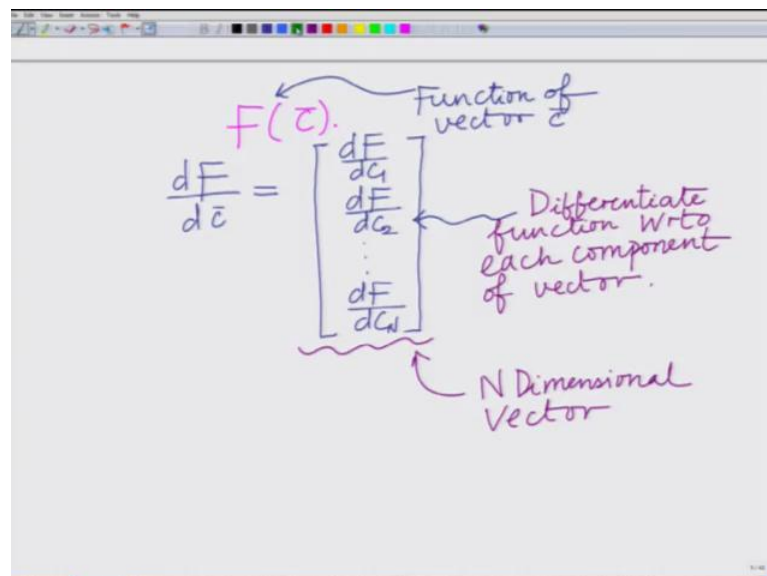 Function of
vector c̄
F(c̄).
dF/dc̄ = [ dF/dc₁
dF/dc₂
⋮
dF/dc_N ]
Differentiate
function w.r.to
each component
of vector.
N Dimensional
Vector